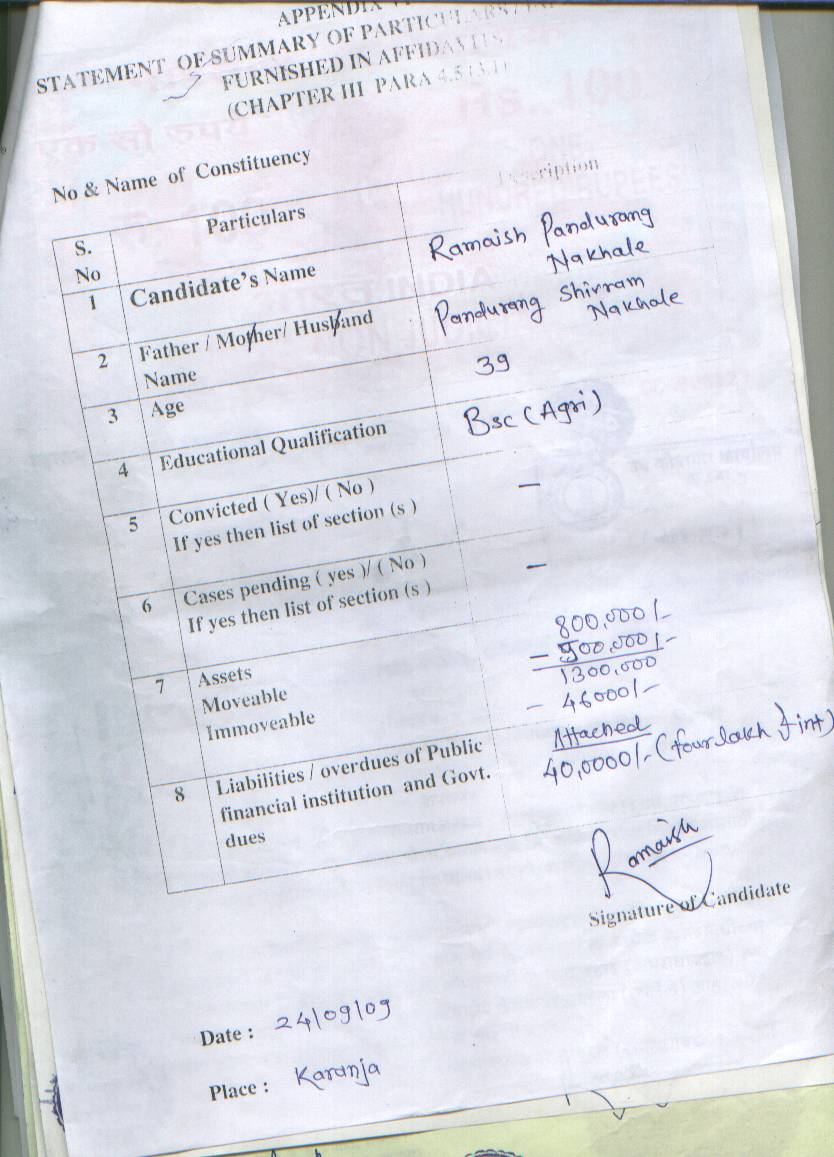 APPENDIX
STATEMENT OF SUMMARY OF PARTICULARS
FURNISHED IN AFFIDAVITS
(CHAPTER III PARA 4.5 (3.1)
No & Name of Constituency
S. No Particulars Description
1 Candidate's Name Ramaish Pandurang Nakhale
2 Father / Mother/ Husband Name Pandurang Shivram Nakhale
3 Age 39
4 Educational Qualification Bsc (Agri)
5 Convicted ( Yes)/ ( No ) –
If yes then list of section (s )
6 Cases pending ( yes )/ ( No ) –
If yes then list of section (s )
7 Assets 800,000/-
Moveable – 500,000/-
1300,000
Immoveable – 46000/-
Attached
8 Liabilities / overdues of Public 40,0000/- (four lakh } int)
financial institution and Govt.
dues
Ramaish
Signature of Candidate
Date : 24/09/09
Place : Karanja